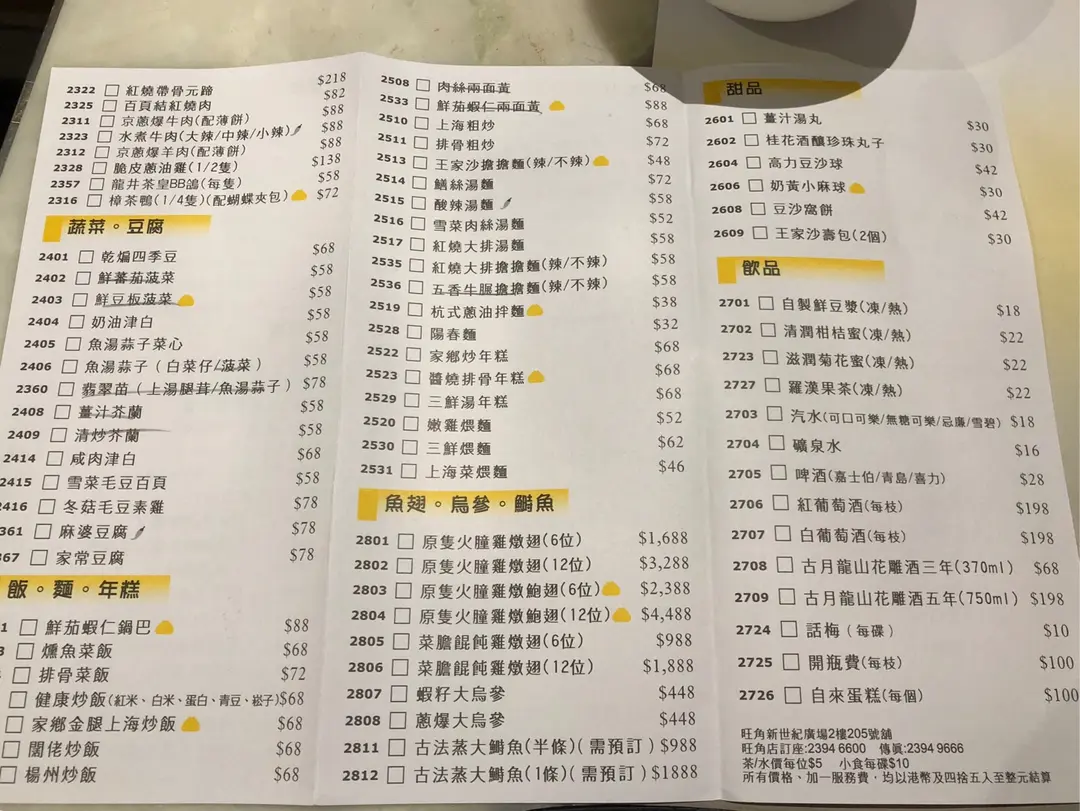 2322 紅燒帶骨元蹄 $218
2325 百頁結紅燒肉 $82
2311 京蔥爆牛肉(配薄餅) $88
2323 水煮牛肉(大辣/中辣/小辣) $88
2312 京蔥爆羊肉(配薄餅) $88
2328 脆皮蔥油雞(1/2隻) $138
2357 龍井茶皇BB鴿(每隻) $58
2316 樟茶鴨(1/4隻)(配蝴蝶夾包) $72
蔬菜。豆腐
2401 乾煸四季豆 $68
2402 鮮蕃茄菠菜 $58
2403 鮮豆板菠菜 $58
2404 奶油津白 $58
2405 魚湯蒜子菜心 $58
2406 魚湯蒜子（白菜仔/菠菜） $58
2360 翡翠苗（上湯腿茸/魚湯蒜子） $78
2408 薑汁芥蘭 $58
2409 清炒芥蘭 $58
2414 咸肉津白 $68
2415 雪菜毛豆百頁 $58
2416 冬菇毛豆素雞 $78
361 麻婆豆腐 $78
367 家常豆腐 $78
飯。麵。年糕
1 鮮茄蝦仁鍋巴 $88
3 燻魚菜飯 $68
排骨菜飯 $72
健康炒飯(紅米、白米、蛋白、青豆、崧子) $68
家鄉金腿上海炒飯 $68
闊佬炒飯 $68
楊州炒飯 $68
2508 肉絲兩面黃 $68
2533 鮮茄蝦仁兩面黃 $88
2510 上海粗炒 $68
2511 排骨粗炒 $72
2513 王家沙擔擔麵(辣/不辣) $48
2514 鱔絲湯麵 $72
2515 酸辣湯麵 $58
2516 雪菜肉絲湯麵 $52
2517 紅燒大排湯麵 $58
2535 紅燒大排擔擔麵(辣/不辣) $58
2536 五香牛𦟌擔擔麵(辣/不辣) $58
2519 杭式蔥油拌麵 $38
2528 陽春麵 $32
2522 家鄉炒年糕 $68
2523 醬燒排骨年糕 $68
2529 三鮮湯年糕 $68
2520 嫩雞煨麵 $52
2530 三鮮煨麵 $62
2531 上海菜煨麵 $46
魚翅。烏參。鰣魚
2801 原隻火朣雞燉翅(6位) $1,688
2802 原隻火朣雞燉翅(12位) $3,288
2803 原隻火朣雞燉鮑翅(6位) $2,388
2804 原隻火朣雞燉鮑翅(12位) $4,488
2805 菜膽餛飩雞燉翅(6位) $988
2806 菜膽餛飩雞燉翅(12位) $1,888
2807 蝦籽大烏參 $448
2808 蔥爆大烏參 $448
2811 古法蒸大鰣魚(半條)(需預訂) $988
2812 古法蒸大鰣魚(1條)(需預訂) $1888
甜品
2601 薑汁湯丸 $30
2602 桂花酒釀珍珠丸子 $30
2604 高力豆沙球 $42
2606 奶黃小麻球 $30
2608 豆沙窩餅 $42
2609 王家沙壽包(2個) $30
飲品
2701 自製鮮豆漿(凍/熱) $18
2702 清潤柑桔蜜(凍/熱) $22
2723 滋潤菊花蜜(凍/熱) $22
2727 羅漢果茶(凍/熱) $22
2703 汽水(可口可樂/無糖可樂/忌廉/雪碧) $18
2704 礦泉水 $16
2705 啤酒(嘉士伯/青島/喜力) $28
2706 紅葡萄酒(每枝) $198
2707 白葡萄酒(每枝) $198
2708 古月龍山花雕酒三年(370ml) $68
2709 古月龍山花雕酒五年(750ml) $198
2724 話梅（每碟） $10
2725 開瓶費(每枝) $100
2726 自來蛋糕(每個) $100
旺角新世紀廣場2樓205號舖
旺角店訂座:2394 6600 傳真:2394 9666
茶/水價每位$5 小食每碟$10
所有價格、加一服務費，均以港幣及四捨五入至整元結算